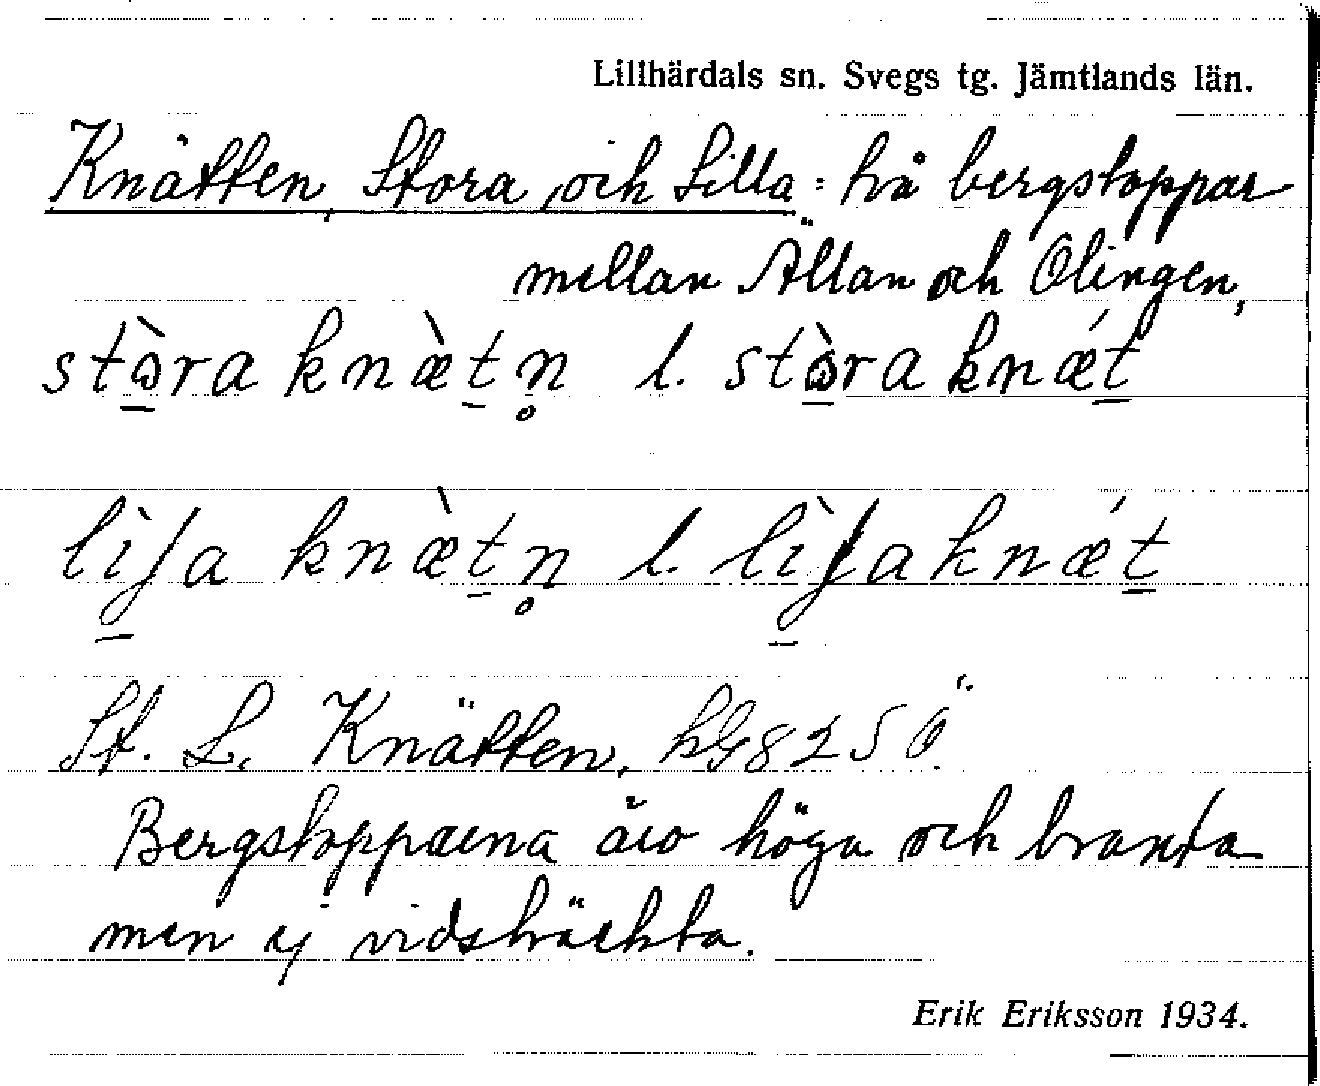 Lillhärdals sn. Svegs tg. Jämtlands län.
Knätten, Stora och Lilla: två bergstoppar
mellan Ällan och Olingen,
stòra knæ̀tn̥ l. stòraknǽt
lìʃa knæ̀tn̥ l. lìʃaknǽt
St. L. Knätten, hG 825 Ö.
Bergstopparna äro höga och branta
men ej vidsträckta.
Erik Eriksson 1934.